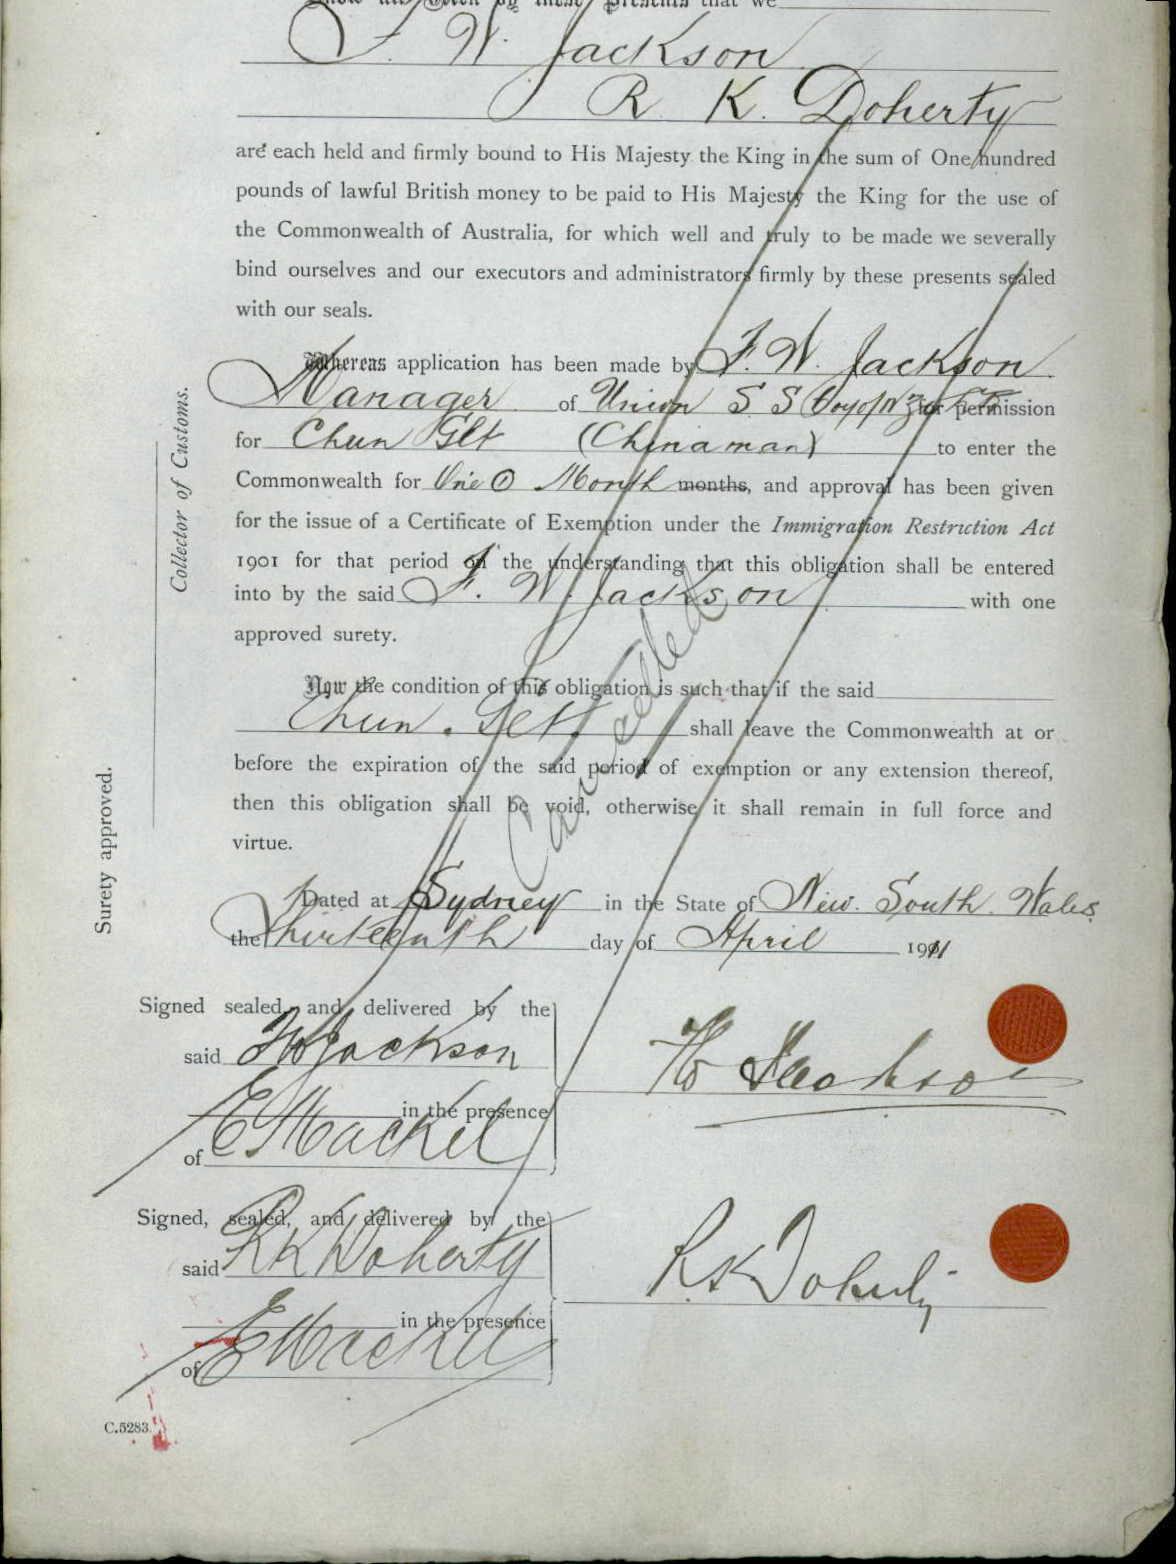 Know all Men by these Presents that we
F. W. Jackson
R. K. Doherty
are each held and firmly bound to His Majesty the King in the sum of One hundred
pounds of lawful British money to be paid to His Majesty the King for the use of
the Commonwealth of Australia, for which well and truly to be made we severally
bind ourselves and our executors and administrators firmly by these presents sealed
with our seals.
Whereas application has been made by F. W. Jackson
Manager of Union S S Coy of N Z for permission
for Chun (Chinaman) to enter the
Commonwealth for One ① Month months, and approval has been given
for the issue of a Certificate of Exemption under the Immigration Restriction Act
1901 for that period on the understanding that this obligation shall be entered
into by the said F. W. Jackson with one
approved surety.
Now the condition of this obligation is such that if the said
Chun shall leave the Commonwealth at or
before the expiration of the said period of exemption or any extension thereof,
then this obligation shall be void, otherwise it shall remain in full force and
virtue.
Cancelled
Dated at Sydney in the State of New South Wales
the Thirteenth day of April 1911
Signed sealed, and delivered by the
said F W Jackson
F W Jackson
in the presence
of E Mackel
Signed, sealed, and delivered by the
said R K Doherty
R. K Doherty
in the presence
of E Mackel
C.5283.
Surety approved.
Collector of Customs.